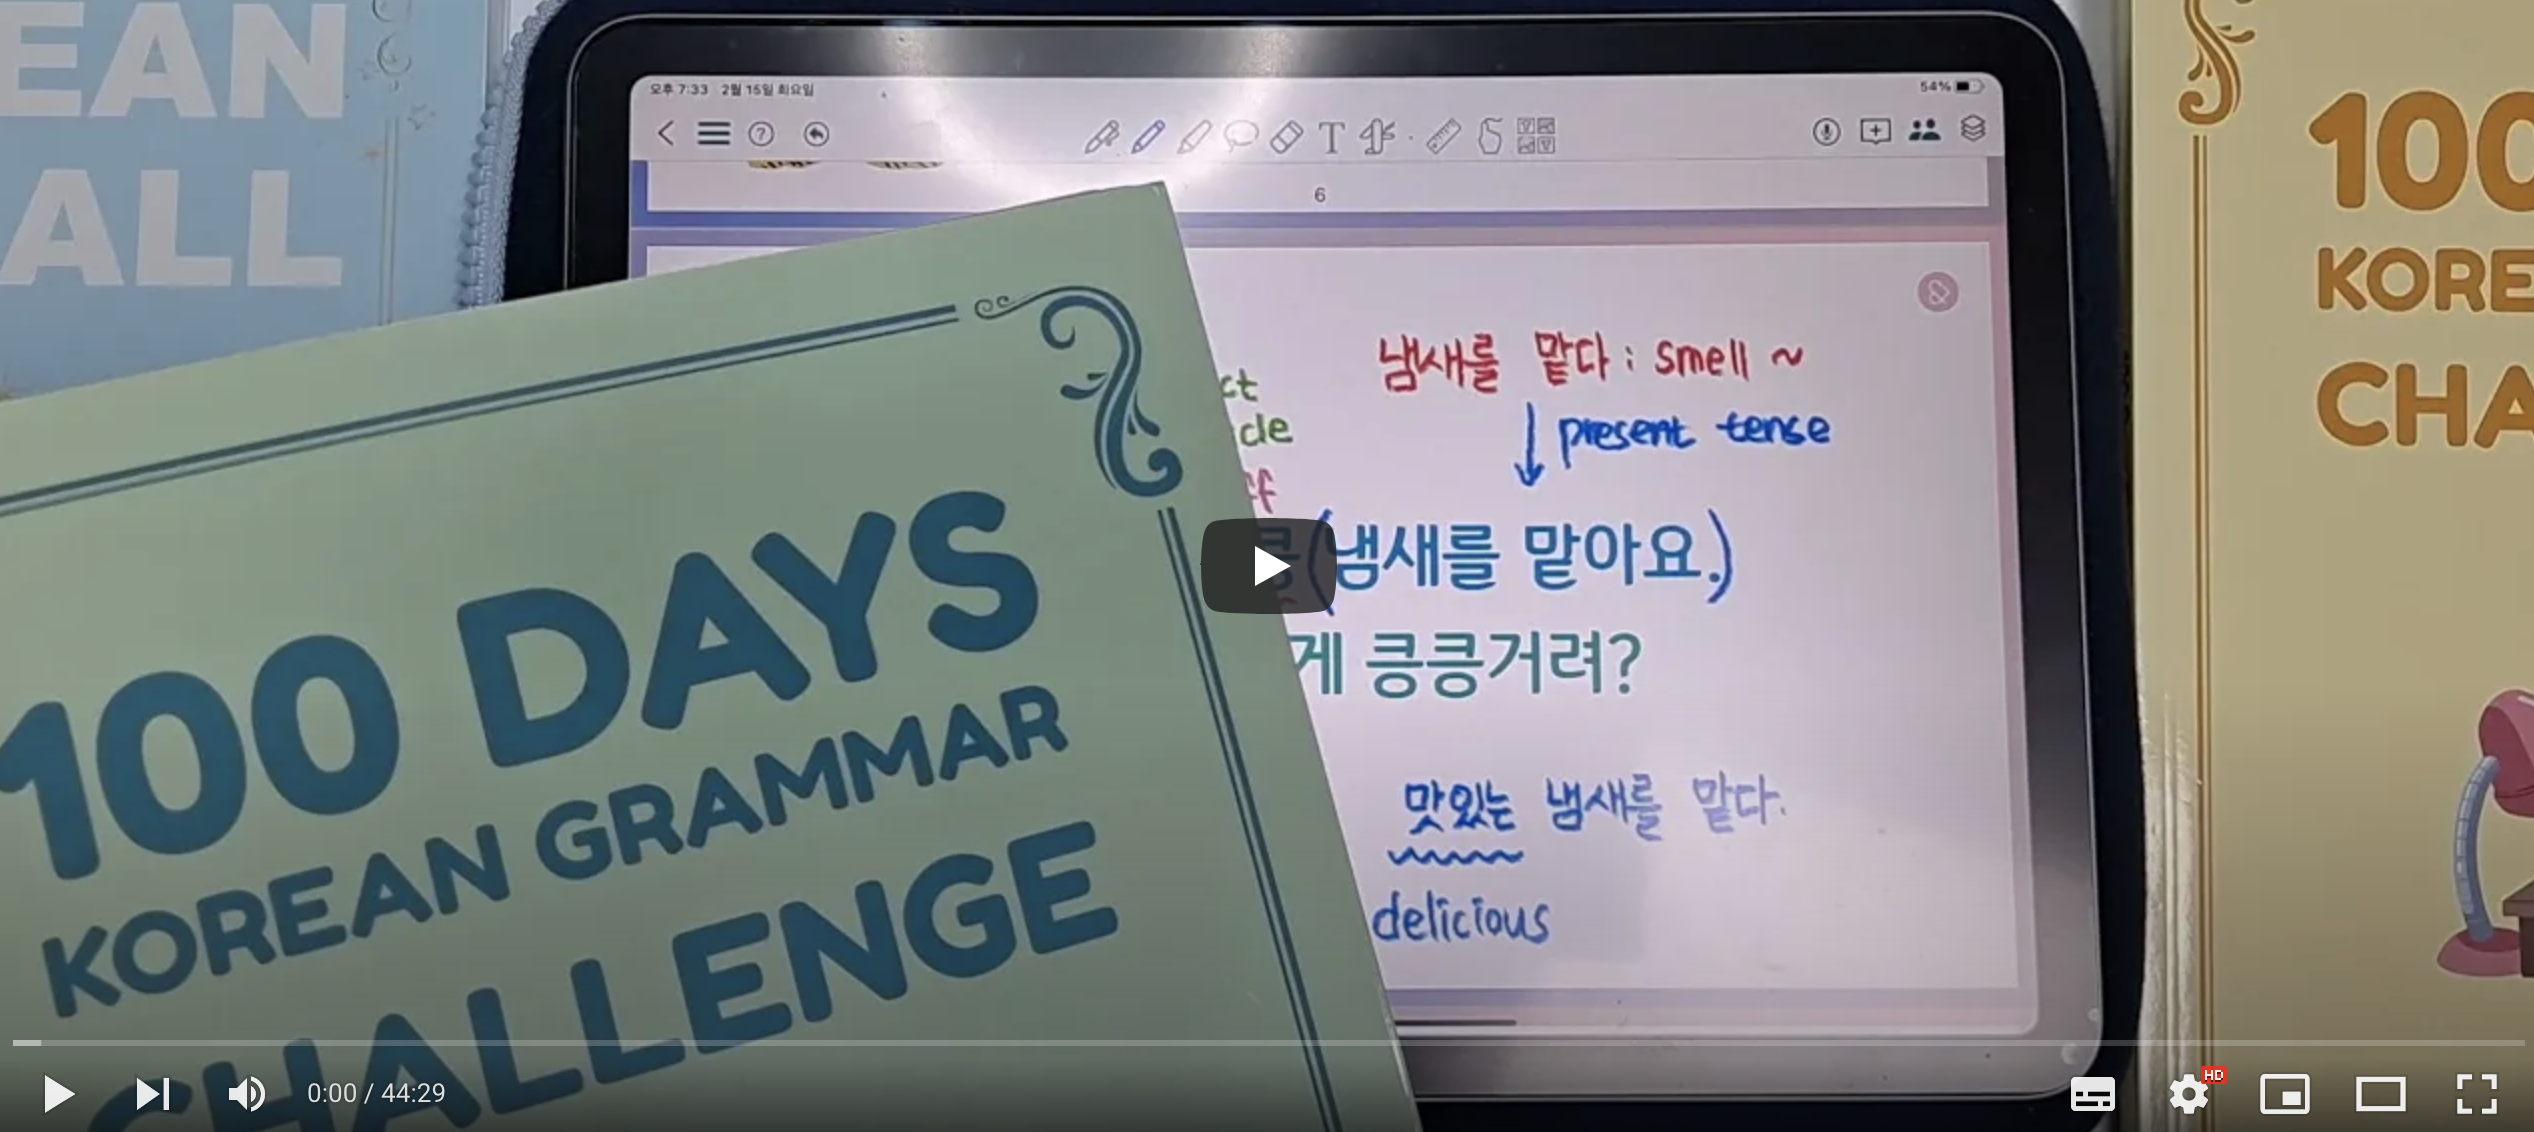 EAN
ALL
오후 7:33 2월 15일 화요일
54%
T
6
냄새를 맡다 : smell ~
ct
cle
ff
↓ present tense
킁(냄새를 맡아요.)
게 킁킁거려?
맛있는 냄새를 맡다.
delicious
100 DAYS
KOREAN GRAMMAR
CHALLENGE
100
KORE
CHA
0:00 / 44:29
HD